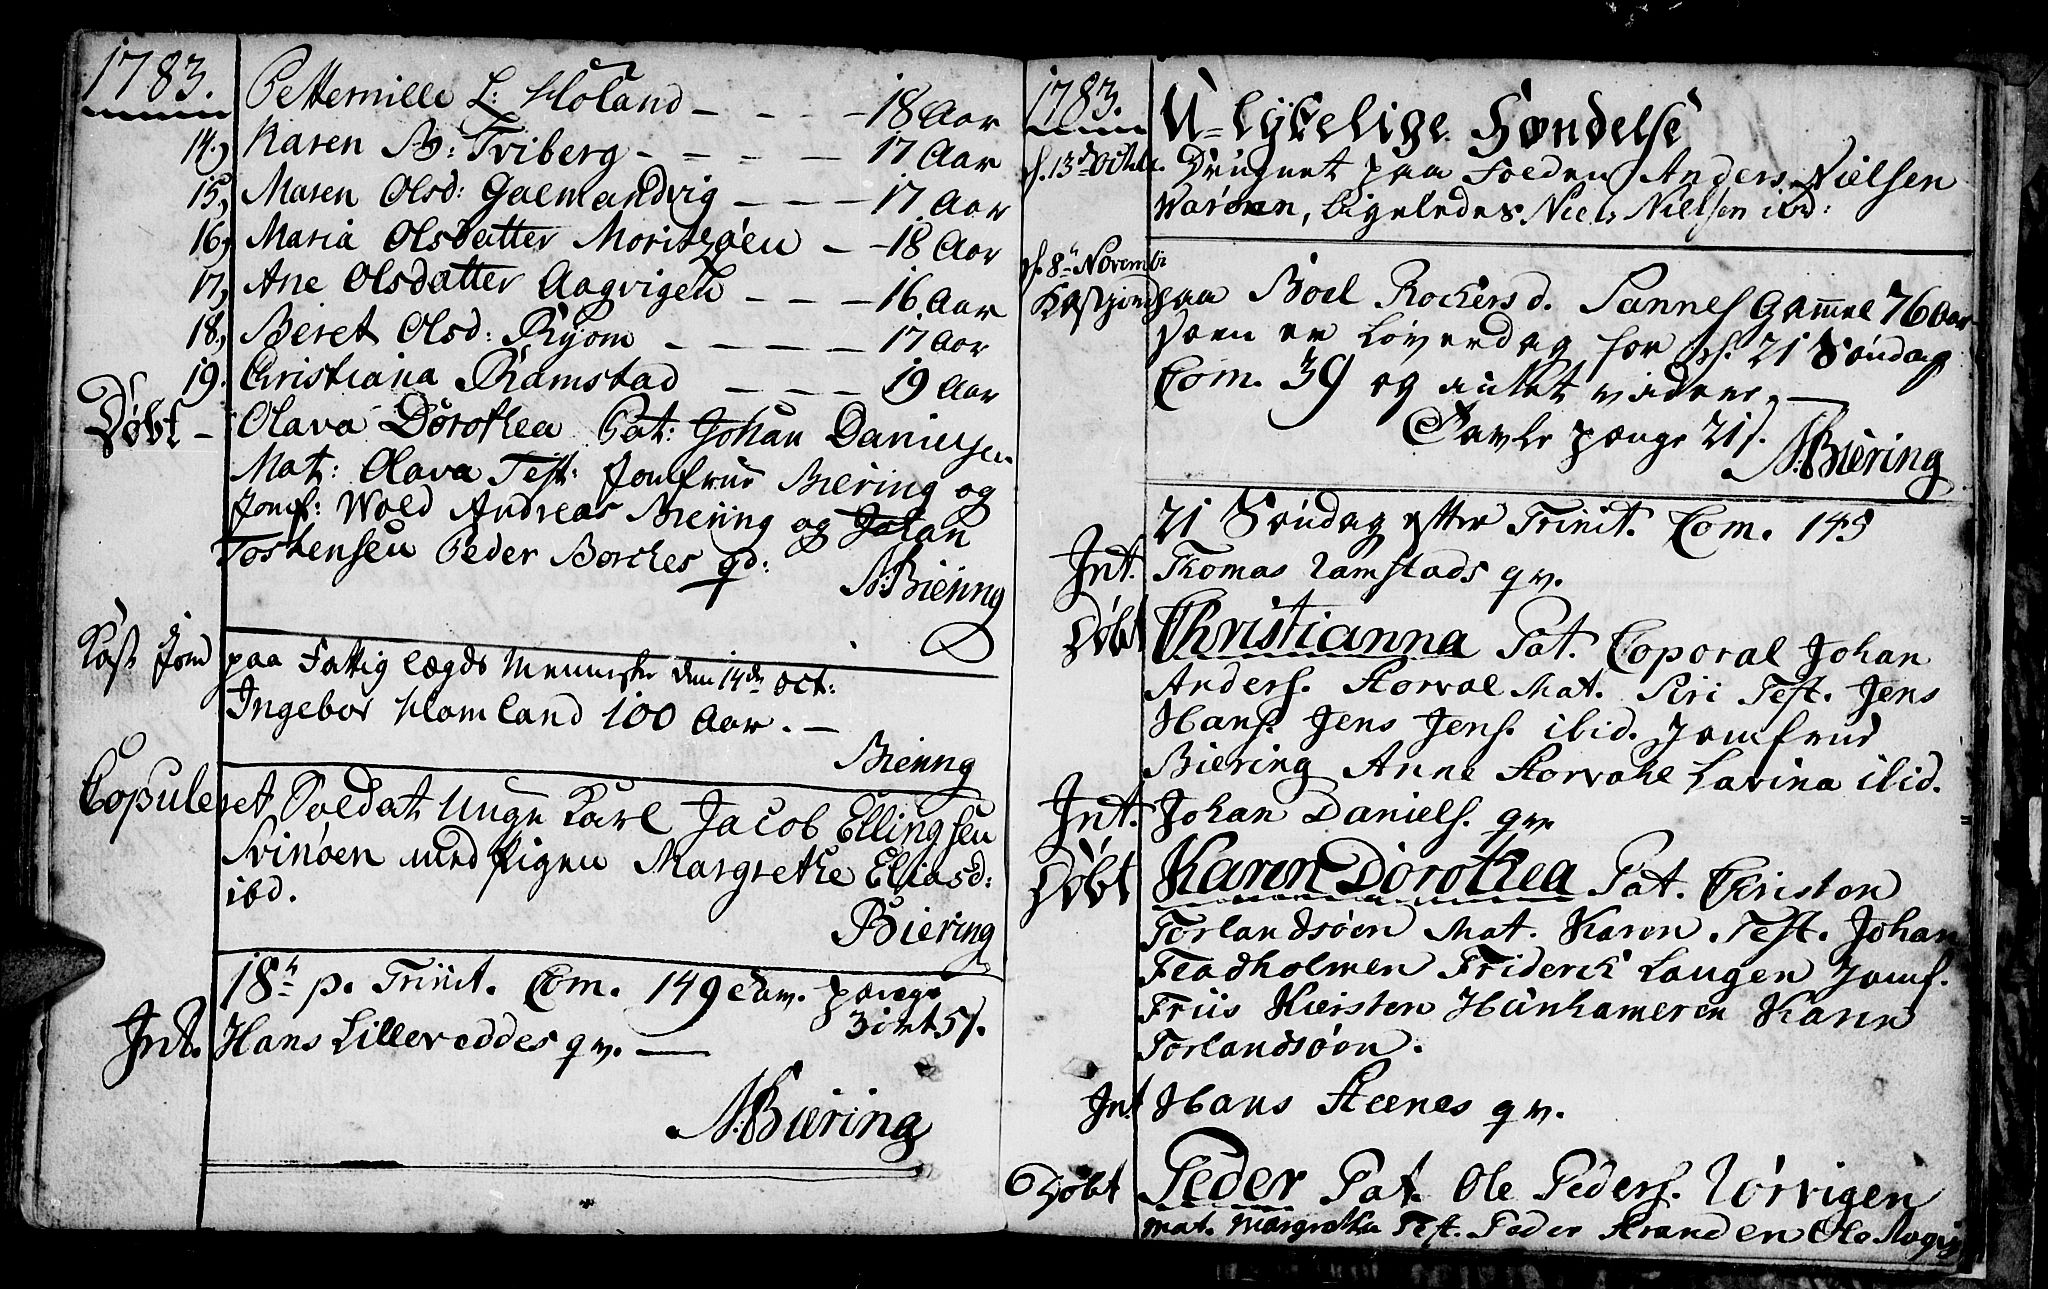 1783.
Petternille L: Høland - - - - 18 Aar
14, Karen A: Friberg - - - - 17 Aar
15, Maren Olsd: Galmandvig - - - 17 Aar
16, Maria Olsdatter Moritzøen - - 18 Aar
17, Ane Olsdatter Aagvigen - - - 16 Aar
18, Beret Olsd: Ryom - - - - 17 Aar
19. Christiana Ramstad - - - 19 Aar
Døbt - Olava Dorothea Pat: Johan Danielsen
Mat: Olava Test: Jomfrue Biering og
Jomf: Wold Andreas Biering og Johan
Tostensen Peder Borches qd:
N: Biering
Kast Jord paa Fattig lægds Mennisker den 14de Oct:
Ingebor Homland 100 Aar. -
Biering
Copuleret Soldat Unge Karl Jacob Ellingsen
Svinøen med Pigen Margrethe Eliasd:
ibd.
Biering
18de p. Trinit. Com. 149 Tav. penge
3 ort 5 s.
Int. Hans Lillevoddes q v. —
N: Biering
1783. U-lykelige Hændelse
d. 13de Octobr. Drugnet paa Soeden Anders Nielsen
Warøen, ligeledes Niels Nielsen ibd:
d. 8de Novembr
Kast jord paa Boel Rochersd. Sannes Gammel 76 Aar
som er Løverdag for d. 21 Søndag
Com. 39 og intet videre. —
Tavle penge 21 s.
N: Biering
21 Søndag efter Trinit. Com. 145
Int. Thomas Ramstads q v.
Døbt Christianna Pat. Coporal Johan
Anders. Storval Mat. Siri Test. Jens
Hans. Jens Jens. ibid. Jomfrue
Biering Anne Storvahl Lavina ibid.
Int. Johan Daniels. q v.
Døbt Karen Dorothea Pat. Christen
Torlandsøen Mat. Karen. Test. Johan
Fladholmen Friderik Laugen Jomf.
Friis Kiersten Hünhameren Karen
Torlandsøen.
Int Hans Steenes q v.
Døbt Peder Pat. Ole Peders. Nørvigen
mat. Margretha Test. Peder Stranden Ole